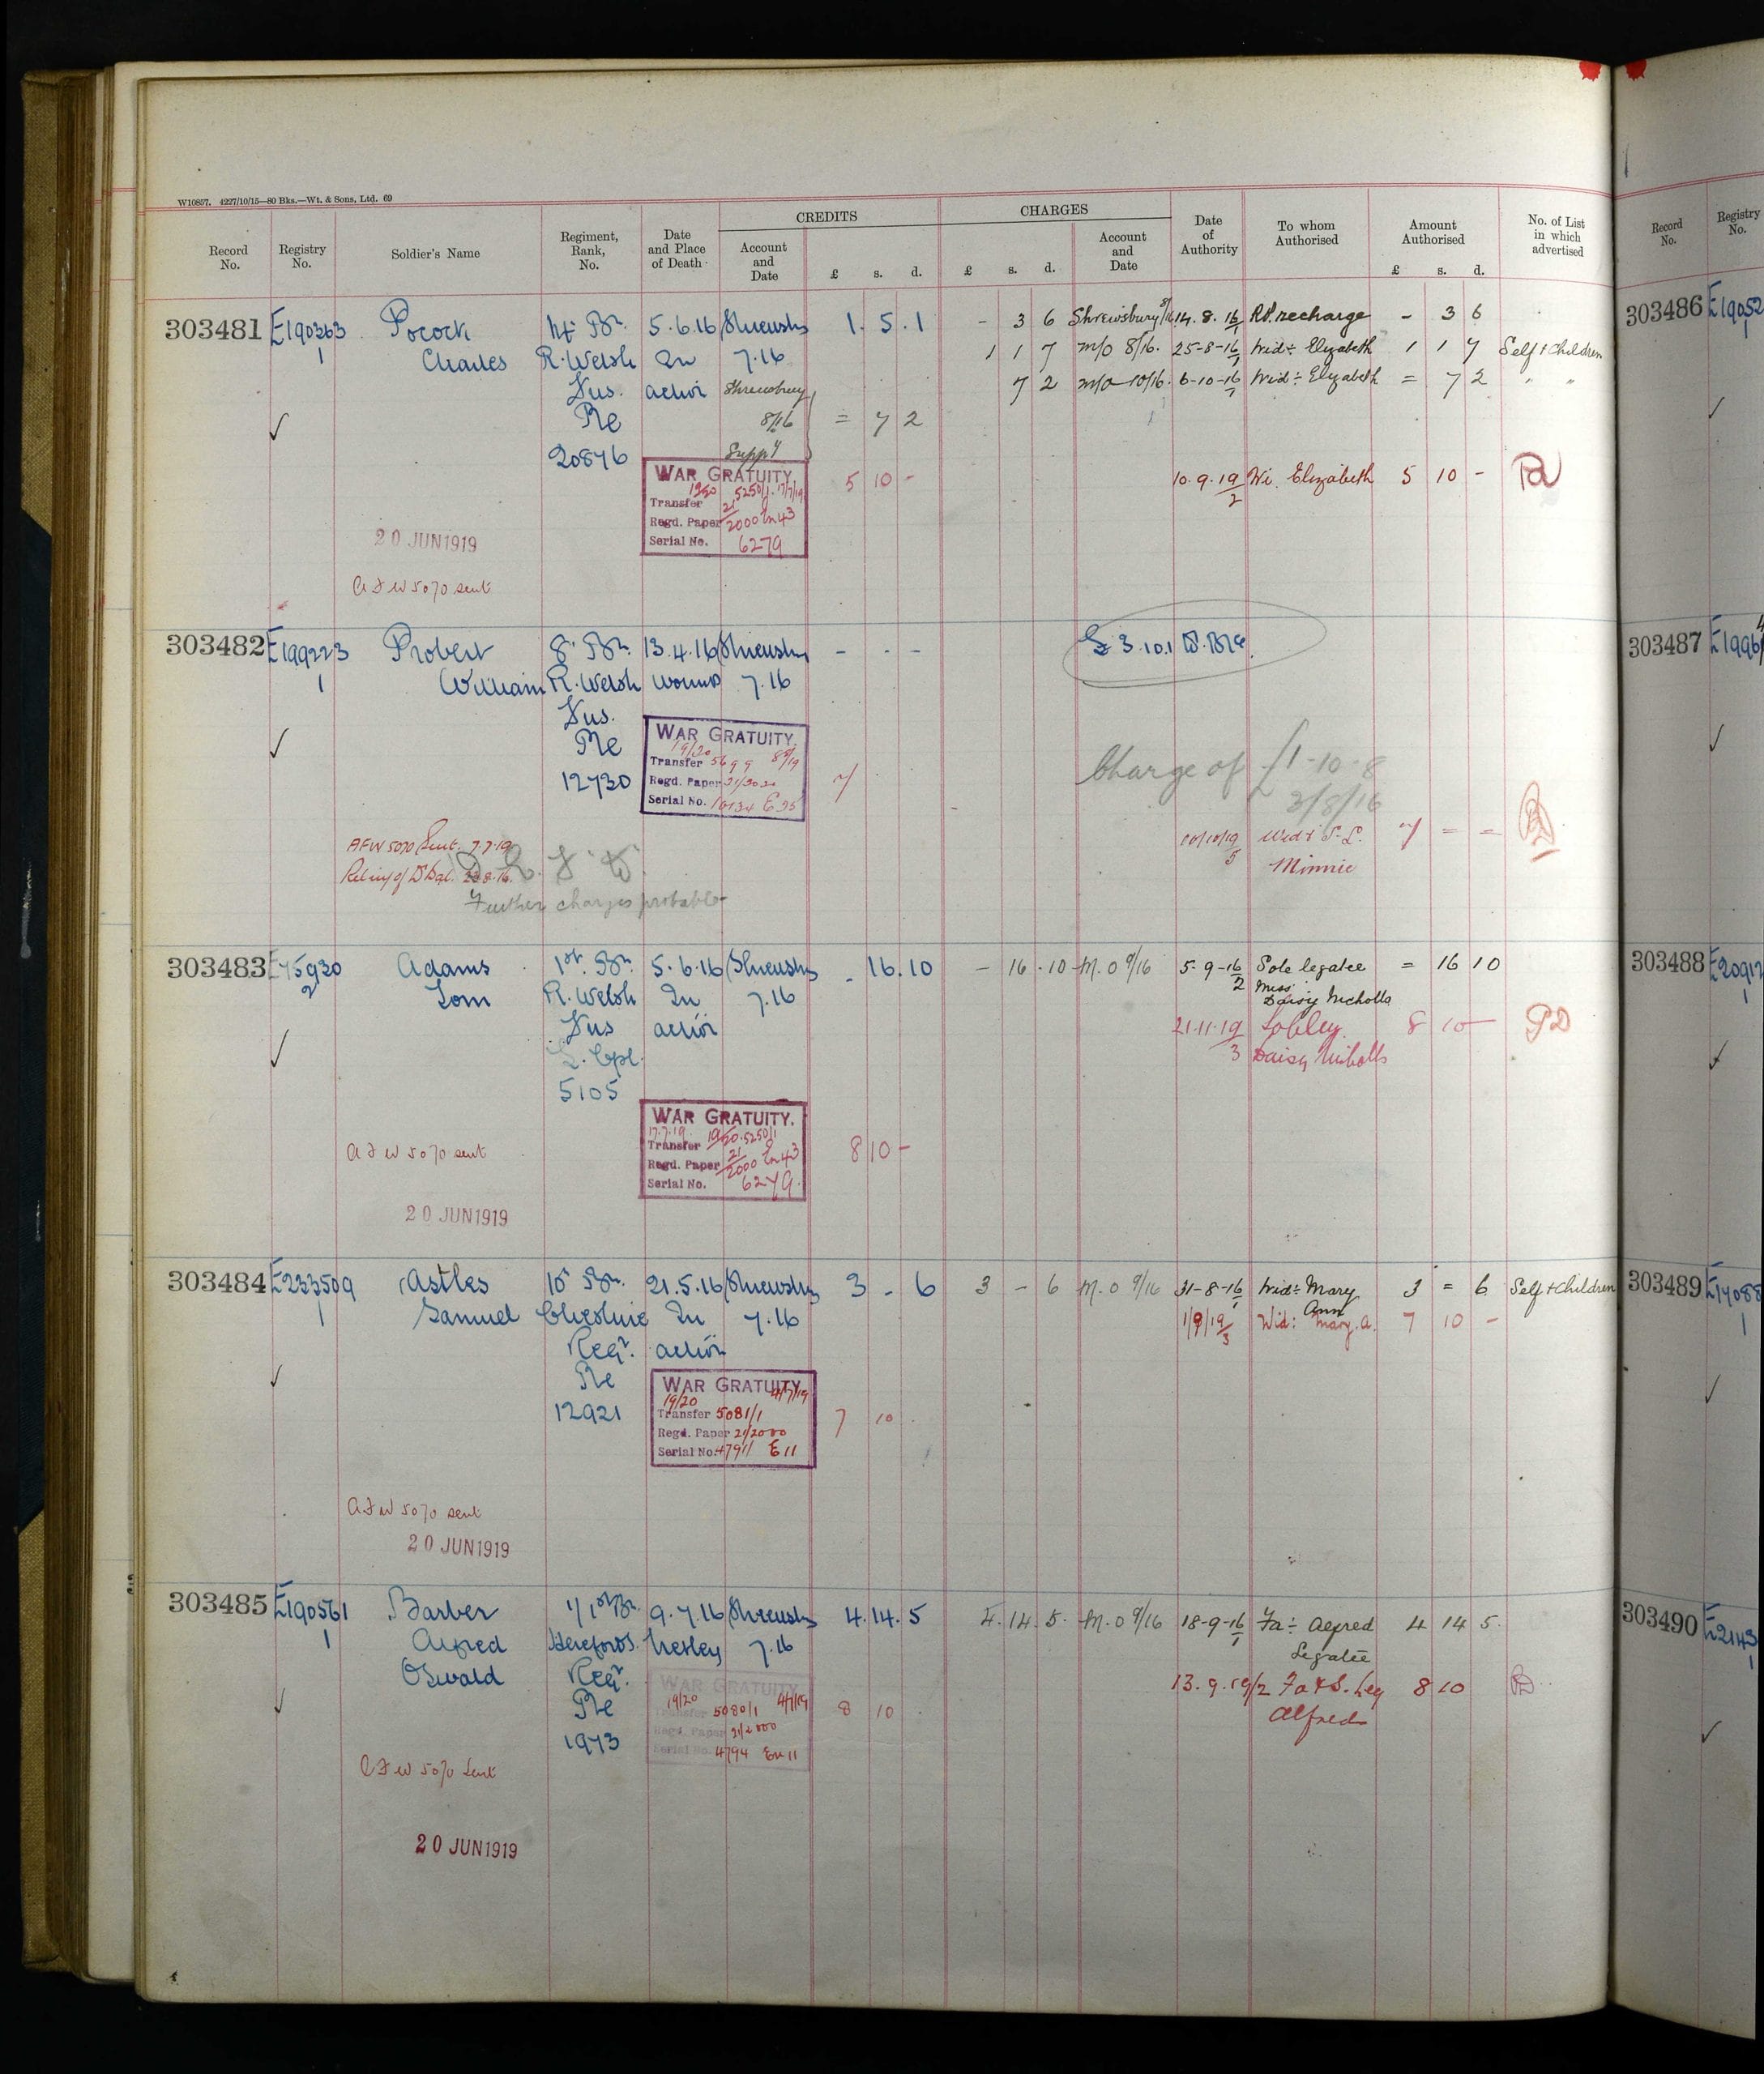 W10857. 4227/10/15—80 Bks.—Wt. & Sons, Ltd. 69
CREDITS CHARGES
Record No. Registry No. Soldier's Name Regiment, Rank, No. Date and Place of Death Account and Date £ s. d. £ s. d. Account and Date Date of Authority To whom Authorised Amount Authorised £ s. d. No. of List in which advertised
303481 E190363 Pocock 5.6.16 Shrewsby 1. 5. 1 - 3 6 Shrewsbury 14.8.16 recharge - 3 6
1 Charles R. Welsh In 7.16 1 1 7 M/O 8/16. 25-8-16 Wid: Elizabeth 1 1 7 Self & Children
Fus. action Shrewsbury 7 2 M/O 10/16. 6-10-16 Wid: Elizabeth = 7 2 " "
Pte 8/16 = 7 2
20876 Suppy
WAR GRATUITY. 5 10 - 10.9.19/2 Wi. Elizabeth 5 10 -
19/20 5250/1. 17/7/19
Transfer 21
Regd. Paper 2000 En 43
Serial No. 6279
20 JUN 1919
A F W 5070 sent
303482 E199223 Probert 8' Bn. 13.4.16 Shrewsby - - - £3.10.1
1 William R. Welsh wounds 7.16
Fus.
✓ Pte WAR GRATUITY.
12730 19/20
Transfer 5699
Regd. Paper 21/2000 7/
Serial No. E 35
Charge of £1-10-8
3/8/16
AFW 5070 Sent. 7.7.19 10/10/19/5 Wid & S.L. 7/ = =
Minnie
Further charges probable
303483 E75930 Adams 1st. Bn. 5.6.16 Shrewsby - 16.10 - 16.10 M.O 9/16 5-9-16 Sole legatee = 16 10
2 Tom R. Welsh In 7.16 2 Miss Daisy Nicholls
Fus action 21.11.19 Sol Leg. 8 10 -
✓ L. Cpl. 3 Daisy Nicholls
5105
WAR GRATUITY.
17.7.19. 19/20. 5250/1
A F W 5070 sent Transfer 21 8 10 -
Regd. Paper 2000 En 43
Serial No. 6279.
20 JUN 1919
303484 E233509 Astles 10' Bn. 21.5.16 Shrewsby 3 - 6 3 - 6 M.O 9/16 31-8-16 Wid: Mary Ann 3 = 6 Self & Children
1 Samuel Cheshire In 7.16 1/9/19/3 Wid: Mary. A. 7 10 -
Regt. action
✓ Pte WAR GRATUITY.
19/20 4/7/19
12921 Transfer 5081/1 7 10
Regd. Paper 21/2000
Serial No. 4791/ E 11
A F W 5070 sent
20 JUN 1919
303485 E190561 Barber 1/1st Bn. 9.7.16 Shrewsby 4.14.5 4.14.5. M.O 9/16 18-9-16 Fa: Alfred 4 14 5.
1 Alfred Herefords. Netley 7.16 Legatee
Oswald Regt. WAR GRATUITY 13.9.19/2 Fa & S. Leg 8 10
✓ Pte 19/20 4/7/19 Alfred
Transfer 5080/1 8 10
1973 Regd. Paper 21/2000
Serial No. 4794 En 11
A F W 5070 sent
20 JUN 1919
Record No. Registry No.
303486
303487
303488
303489
303490